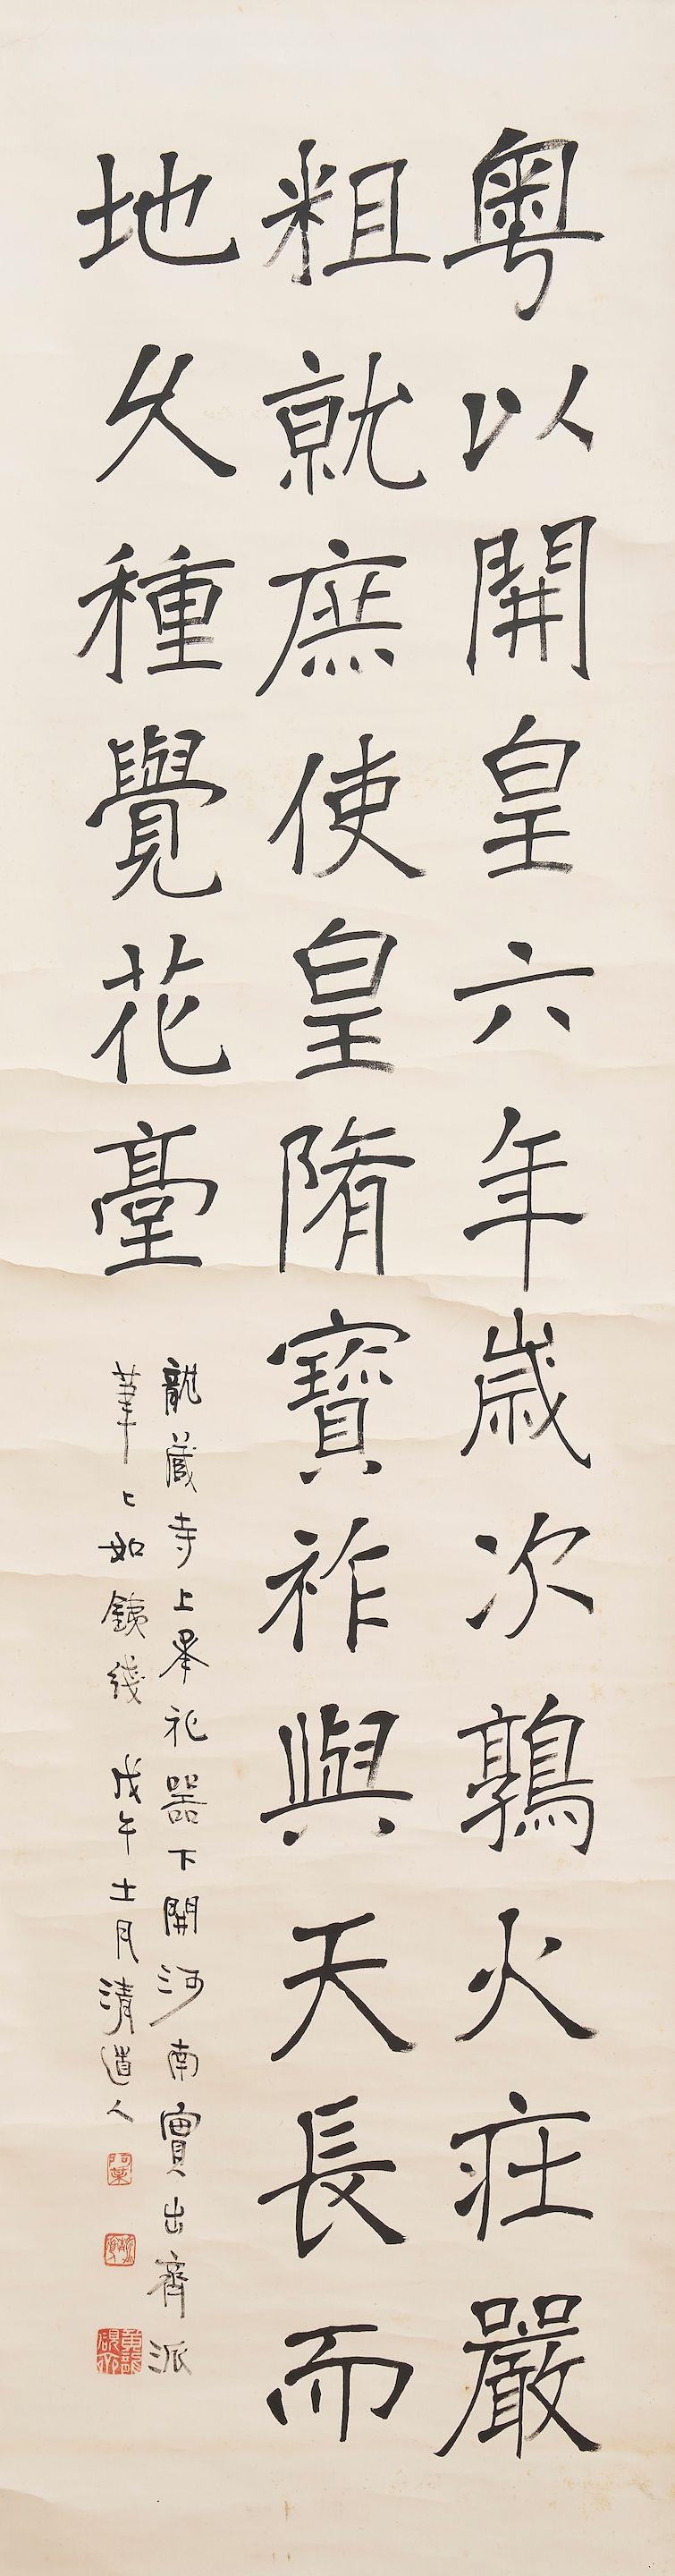 粵以開皇六年歲次鶉火莊嚴
粗就庶使皇隋寶祚與天長而
地久種覺花臺
龍藏寺上承礼器下開河南實出齊派
筆〻如銕綫 戊午十二月清道人
阿某
黃龍硯齋